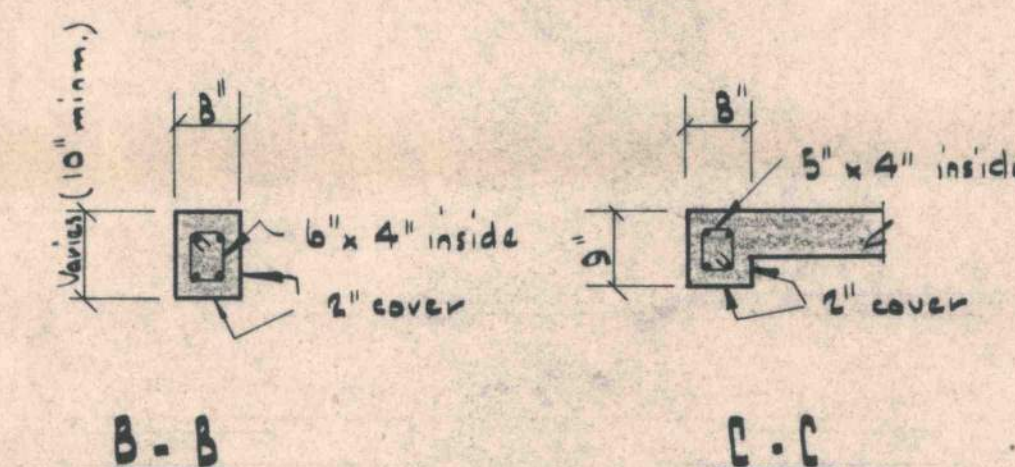 Varies (10" minm.)
8"
6" x 4" inside
2" cover
B - B
8"
9"
5" x 4" inside
2" cover
C - C